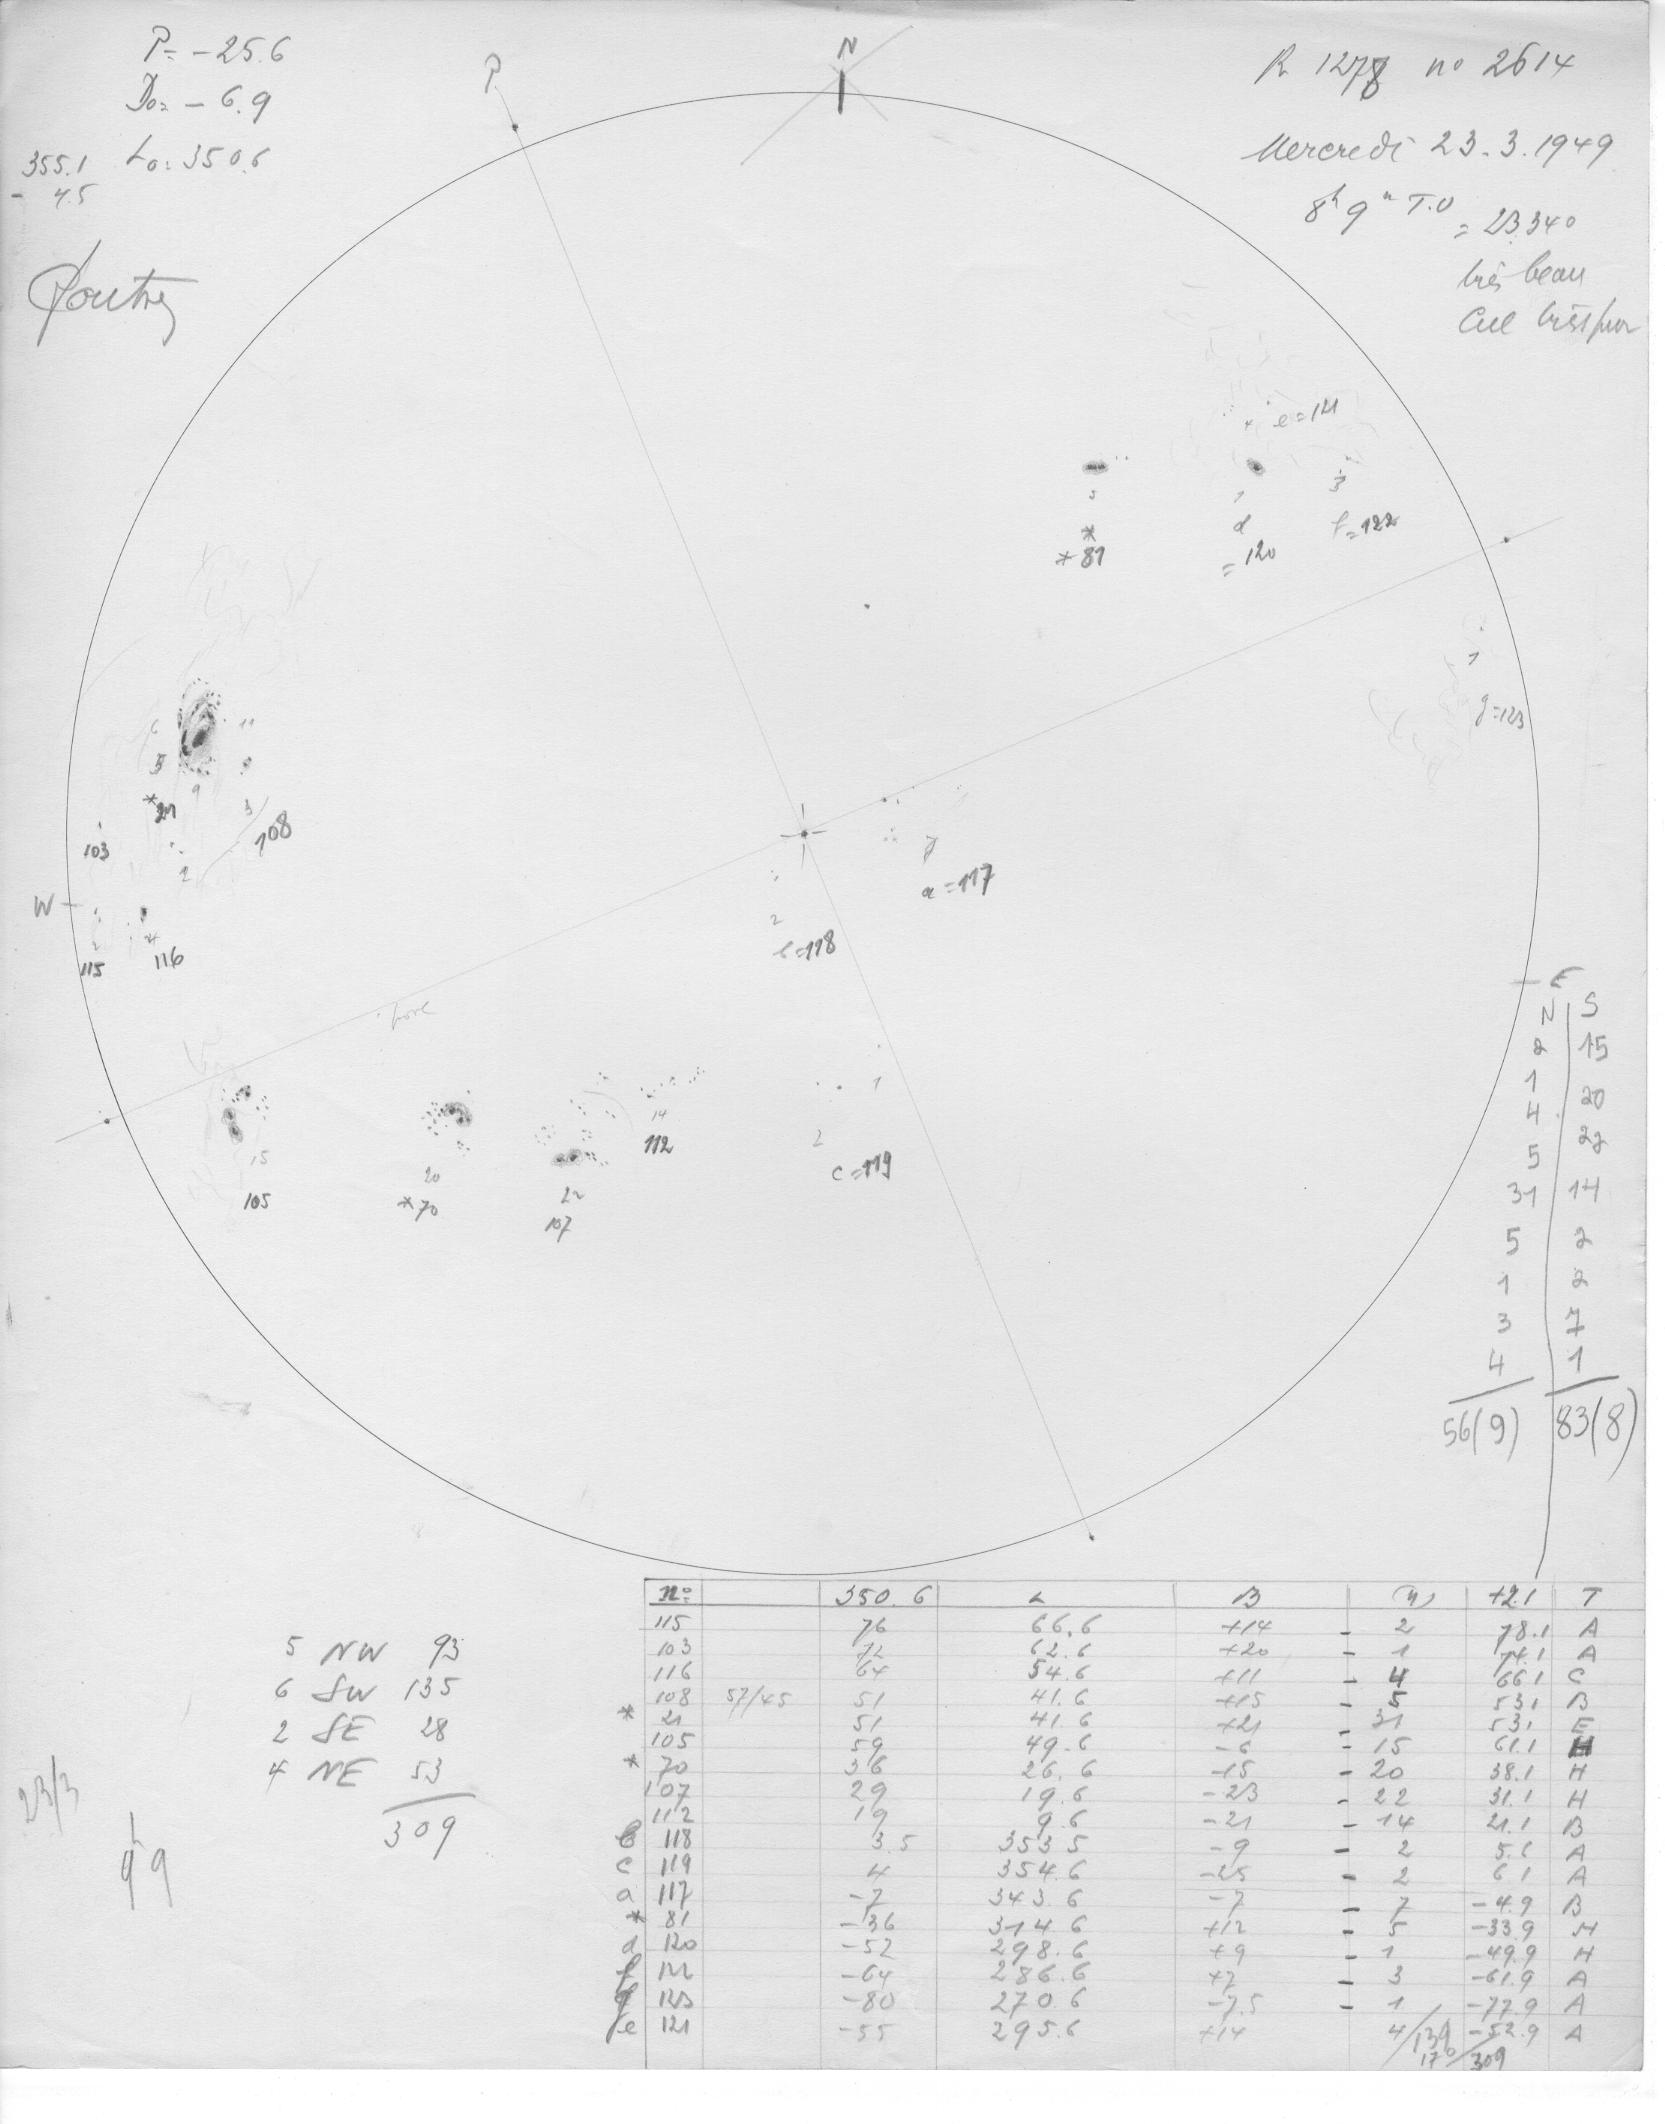 P= -25.6
Do= - 6.9
355.1 Lo: 350.6
- 4.5
P
N
R 1278 no 2614
Mercredi 23.3.1949
8h 9m T.U
= 23.340
très beau
Ciel très pur
e=121
5
*
*81
1
d
=120
3
f=122
1
g=123
6
11
5
9
*21
3
108
103
2
W
2
115
4
116
7
a=117
2
b=118
pore
15
105
20
*70
22
107
14
112
1
2
c=119
E
N S
2 15
1 20
4 22
5 14
31 2
5 2
1 7
3 1
4
56(9) 83(8)
5 NW 93
6 SW 135
2 SE 28
4 NE 53
309
23/3
9h9
n° 350.6 L B +2.1 T
115 76 66.6 +14 - 2 78.1 A
103 72 62.6 +20 - 1 74.1 A
116 64 54.6 +11 - 4 66.1 C
108 57/45 51 41.6 +15 - 5 53.1 B
* 21 51 41.6 +21 - 31 53.1 E
105 59 49.6 -6 - 15 61.1 H
* 70 36 26.6 -15 - 20 38.1 H
107 29 19.6 -23 - 22 31.1 H
112 19 9.6 -21 - 14 21.1 B
b 118 3.5 353.5 -9 - 2 5.6 A
c 119 4 354.6 -25 - 2 6.1 A
a 117 -7 343.6 -7 - 7 -4.9 B
* 81 -36 314.6 +12 - 5 -33.9 H
d 120 -52 298.6 +9 - 1 -49.9 H
f 122 -64 286.6 +7 - 3 -61.9 A
g 123 -80 270.6 -7.5 - 1 -77.9 A
e 121 -55 295.6 +14 4/139 -52.9 A
170/309